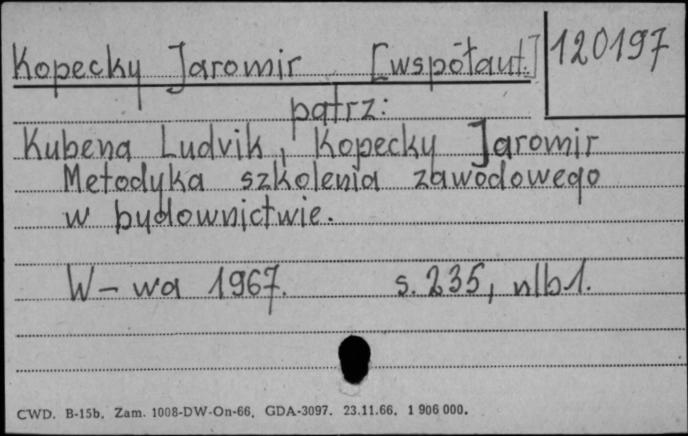 Kopecky Jaromir [współaut.] 120197
patrz:
Kubena Ludvik, Kopecky Jaromir
Metodyka szkolenia zawodowego
w budownictwie.
W-wa 1967. s. 235, nlb1.
CWD. B-15b. Zam. 1008-DW-On-66. GDA-3097. 23.11.66. 1 906 000.